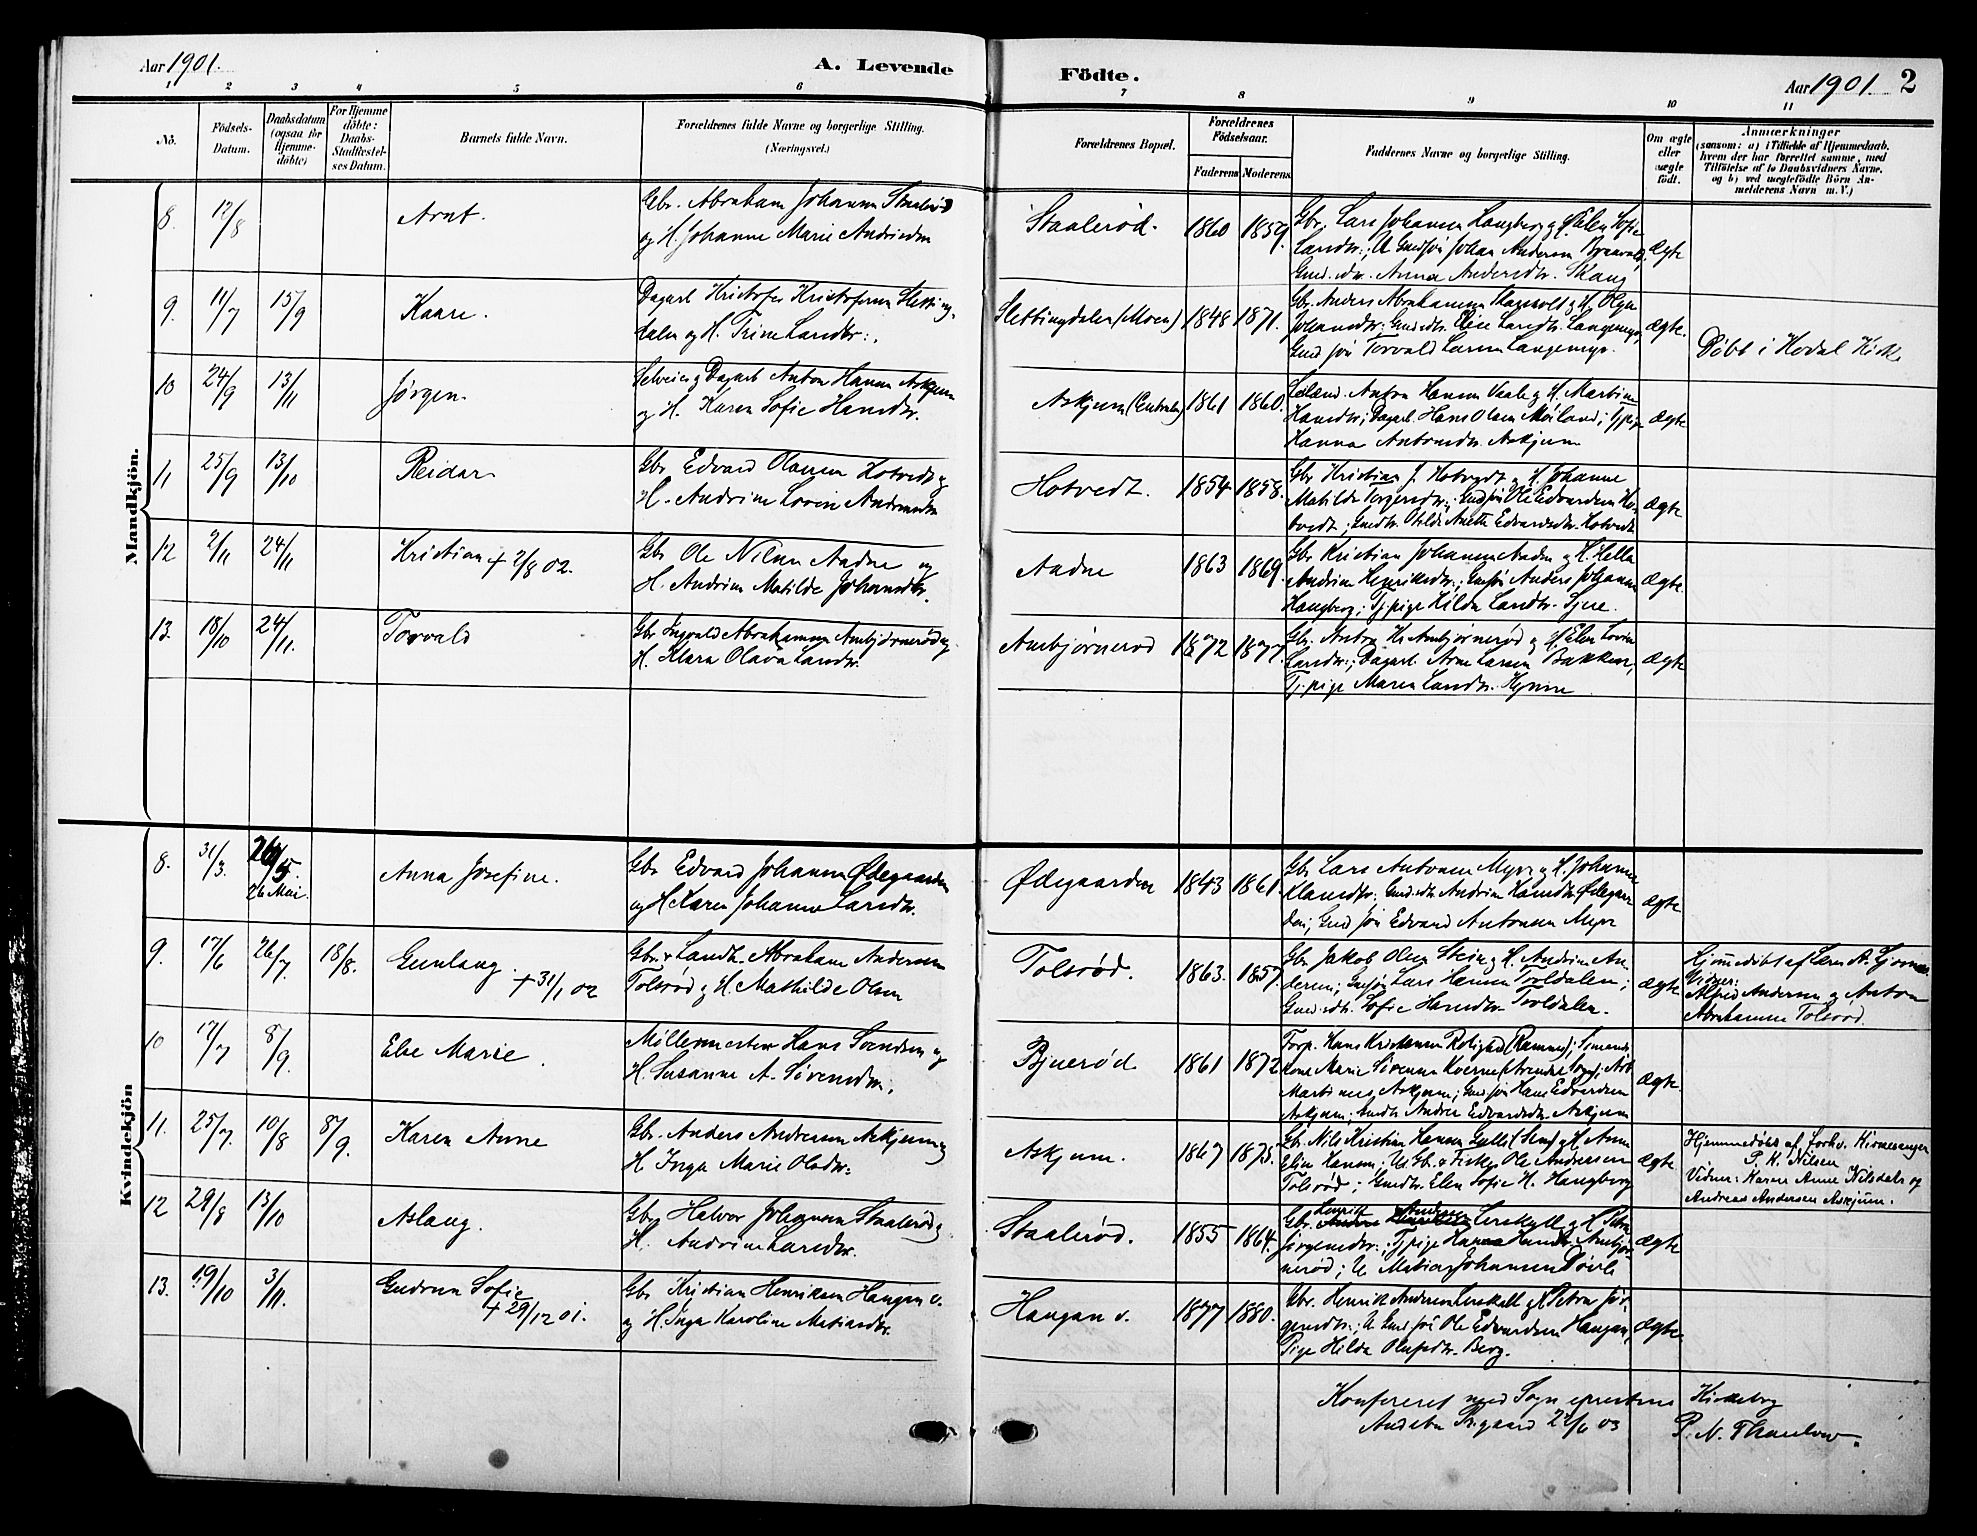 Aar 1901.
A. Levende
Födte.
Aar 1901. 2
1 2 3 4 5 6 7 8 9 10 11
No.
Födsels-
Datum.
Daabsdatum
(ogsaa for
Hjemme-
döbte)
For Hjemme
döbte:
Daabs-
Stadfæstel-
ses Datum.
Barnets fulde Navn.
Forældrenes fulde Navne og borgerlige Stilling.
(Næringsvei.)
Forældrenes Bopæl.
Forældrenes
Födselsaar.
Faderens Moderens
Faddernes Navne og borgerlige Stilling.
Om ægte
eller
uægte
födt.
Anmærkninger
(saasom: a) i Tilfælde af Hjemmedaab,
hvem der har forrettet samme, med
Tilföielse af to Daabsvidners Navne,
og b) ved uægtefödte Börn An-
melderens Navn m. V.)
Mandkjön.
8. 12/8
Arnt.
Gbr. Abraham Johansen Staalerød
og H. Johanne Marie Andriasdtr
Staalerød.
1860 1859.
Gbr. Lars Johansen Haugberg og H. Elen Sofie
Larsdtr.; U. Gmdsøn Johan Andersen
Gmd.dtr. Anna Andersdtr. Skaug
Ægte
9. 11/7 15/9
Kaare.
Dagarb. Kristofer Kristofersen Sletting-
dalen og H. Trine Larsdtr.
Slettingdalen (Moen)
1848 1871.
Gbr. Anders Abrahamsen og H. Olga
Johansdtr; Gmd.dtr. Elise Larsdtr. Langemyr,
Gmd søn Torvald Larsen Langemyr.
Ægte.
Døbt i Hodal Kirke
10 24/9 13/11
Jørgen.
Selveier og Dagarb. Anton Hansen Askjem
og H. Karen Sofie Hansdtr.
Askjem (Centralen)
1861 1860.
Anton Hansen Vaale og H. Martine
Hansdtr; Dagarb. Hans Olsen Møiland; Tj.pige
Hanna Antonsdtr. Askjem
Ægte
11 25/9 13/10
Reidar
Gbr Edvard Olausen Hotvedt og
H. Andrine Lovise Andersdtr
Hotvedt.
1854 1858.
Gbr Kristian J. Hotvedt og H. Johanne
Matilde Torgersdtr; Gmdsøn Ole Edvardsen Ho-
tvedt; Gmdtr. Otilde Anette Edvardsdtr. Hotvedt
Ægte
12 2/11 24/11
Kristian + 2/8 02.
Gbr Ole Nilsen Aadne og
H. Andrine Matilde Johansdtr.
Aadne
1863 1869.
Gbr Kristian Johansen Aadne og H. Helle
Andrine Henriksdtr; Gmsøn Anders Johansen
Haugberg; Tj.pige Hilda Larsdtr.
Ægte.
13. 18/10 24/11.
Torvald
Gbr Ingvald Abrahamsen Anbjørnerød og
H. Klara Olava Larsdtr.
Anbjørnerød
1872 1877
Gbr. Anton Kr. Anbjørnerød og H. Elen Lovise
Larsdtr; Dagarb. Arne Larsen Bakken,
Tj.pige Maren Larsdtr.
Ægte
Kvindekjön
8. 31/3. 26/5.
26 Mai.
Anna Josefine.
Gbr Edvard Johansen Ødegaarden
og H. Karen Johanne Larsdtr.
Ødegaarden
1843 1861.
Gbr Lars Antonsen Myre og H. Johanne
Klausdtr; Gmd.dtr Andrine Hansdtr. Ødegaar-
den; Gmd søn Edvard Antonsen Myre
Ægte
9. 17/6 26/7. 18/8.
Gunlaug. + 31/1 02
Gbr. & Landh. Abraham Andersen
Tolsrød og H. Mathilde Olsen
Tolsrød.
1863. 1857.
Gbr Jakob Olsen Stein og H. Andrine An-
dersen; Gmsøn Lars Hansen Troldalen;
Gmd.dtr. Sofie Hansdtr. Troldalen.
Ægte
Hjemmedøbt af Lærer A. Gjerme
Vidner:
Alfred Andersen og Anton
Abrahamsen Tolsrød.
10 17/7 8/9.
Else Marie.
Møllermester Hans Svendsen og
H. Susanne A. Sørensdtr.
Bjuerød
1861 1872
Forp. Hans Kristensen Rolighed (Ramnes); Sømands-
kone Marie Sørensen; Arb
Martinus Askjem; Gmd søn Hans Edvardsen
Askjem; Gmdtr Andrea Edvardsdtr. Askjem
Ægte.
11. 25/7. 10/8 8/9.
Karen Anne
Gbr. Anders Andreassen Askjem og
H. Inga Marie Olsdtr.
Askjem.
1867 1875.
Gbr. Nils Kristian Hansen Gulli (Sem) og H. Anne
Elise Hansen; U. Gb. & Fisker Ole Andreassen
Tolsrød; Gmdtr. Elen Sofie H. Haugberg
Ægte
Hjemmedøbt af forhv. Kirkesanger
P. K. Nilsen
Vidner: Karen Anne Nilsdatr og
Andreas Andersen Askjem.
12 29/8 13/10
Aslaug.
Gbr. Halvor Johansen Staalerød og
H. Andrine Larsdtr.
Staalerød.
1855 1864.
Gbr. Henrik Andersen Lerskall og H. Petra
Jørgensdtr; Tj.pige Hanna Hansdtr. Anbjør-
nerød; U. Matias Johansen
Ægte
13. 19/10 3/11.
Gudrun Sofie
+ 29/12 01.
Gbr Kristian Henriksen Haugan v.
og H. Inga Karoline Matiasdtr.
Haugan v.
1877 1880.
Gbr. Henrik Andersen Lerskall og H. Petra Jør-
gensdtr; U. Gmd søn Ole Edvardsen Haugan;
Pige Hilda Olufsdtr. Berg.
Ægte
Konfereret med Sognepræstens Kirkebog
Andebu Prgaard 22/6 03 P. N. Thaulow.